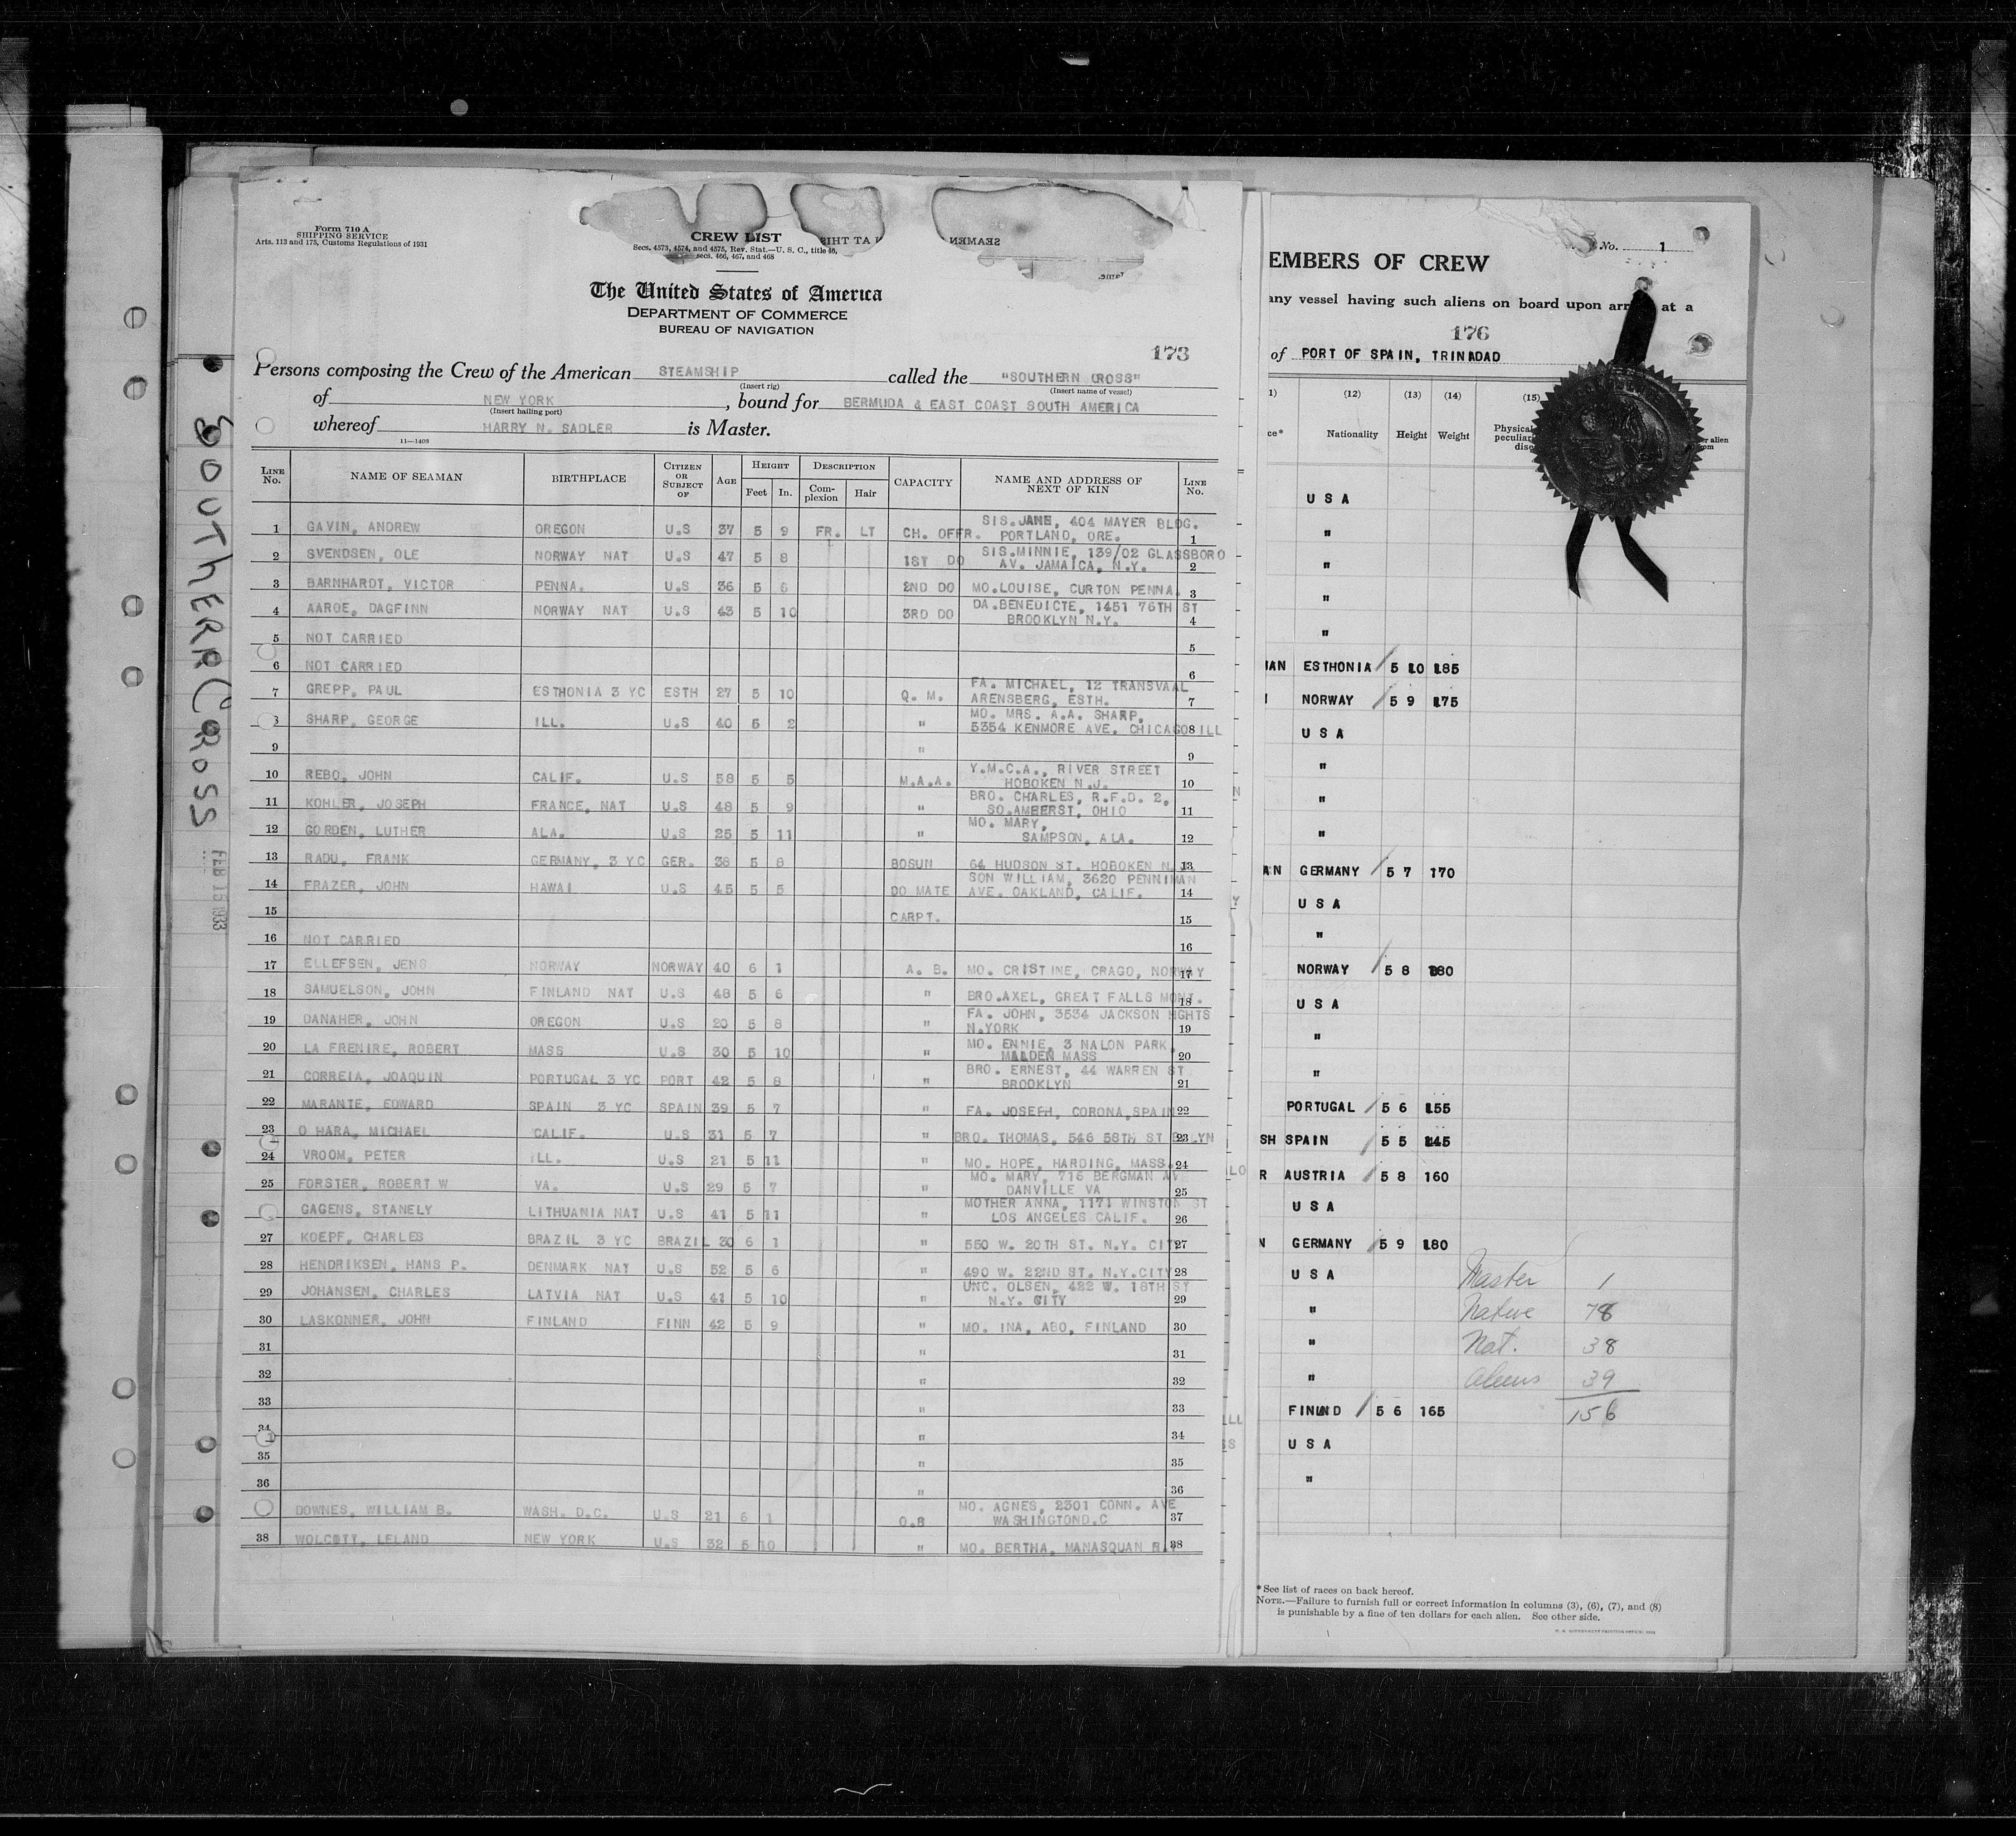 Form 710 A
SHIPPING SERVICE
Arts. 113 and 175, Customs Regulations of 1931
CREW LIST
Secs. 4573, 4574, and 4575, Rev. Stat.—U. S. C., title 46,
secs. 466, 467, and 468
AT THIS
SEAMEN
The United States of America
DEPARTMENT OF COMMERCE
BUREAU OF NAVIGATION
173
Persons composing the Crew of the American STEAMSHIP called the "SOUTHERN CROSS"
(Insert rig) (Insert name of vessel)
of NEW YORK, bound for BERMUDA & EAST COAST SOUTH AMERICA
(Insert hailing port)
whereof HARRY N. SADLER is Master.
11—1408
LINE No. NAME OF SEAMAN BIRTHPLACE CITIZEN OR SUBJECT OF AGE HEIGHT Feet In. DESCRIPTION Complexion Hair CAPACITY NAME AND ADDRESS OF NEXT OF KIN LINE No.
1 GAVIN, ANDREW OREGON U.S 37 5 9 FR. LT CH. OFFR. SIS.JANE, 404 MAYER BLDG. PORTLAND, ORE. 1
2 SVENDSEN, OLE NORWAY NAT U.S 47 5 8 1ST DO SIS.MINNIE, 139/02 GLASSBORO AV. JAMAICA, N.Y. 2
3 BARNHARDT, VICTOR PENNA. U.S 36 5 6 2ND DO MO.LOUISE, CURTON PENNA. 3
4 AAROE, DAGFINN NORWAY NAT U.S 43 5 10 3RD DO DA.BENEDICTE, 1451 76TH ST BROOKLYN N.Y. 4
5 NOT CARRIED 5
6 NOT CARRIED 6
7 GREPP, PAUL ESTHONIA 3 YC ESTH 27 5 10 Q. M. FA. MICHAEL, 12 TRANSVAAL ARENSBERG, ESTH. 7
8 SHARP, GEORGE ILL. U.S 40 5 2 " MO. MRS. A.A. SHARP, 5354 KENMORE AVE. CHICAGO ILL 8
9 " 9
10 REBO, JOHN CALIF. U.S 58 5 5 M.A.A. Y.M.C.A., RIVER STREET HOBOKEN N.J. 10
11 KOHLER, JOSEPH FRANCE, NAT U.S 48 5 9 " BRO. CHARLES, R.F.D. 2, SO.AMHERST, OHIO 11
12 GORDEN, LUTHER ALA. U.S 25 5 11 " MO. MARY, SAMPSON, ALA. 12
13 RADU, FRANK GERMANY, 3 YC GER. 38 5 8 BOSUN 64 HUDSON ST. HOBOKEN N.J. 13
14 FRAZER, JOHN HAWAI U.S 45 5 5 DO MATE SON WILLIAM, 3620 PENNIMAN AVE. OAKLAND, CALIF. 14
15 CARPT. 15
16 NOT CARRIED 16
17 ELLEFSEN, JENS NORWAY NORWAY 40 6 1 A. B. MO. CRISTINE, CRAGO, NORWAY 17
18 SAMUELSON, JOHN FINLAND NAT U.S 48 5 6 " BRO.AXEL, GREAT FALLS MONT. 18
19 DANAHER, JOHN OREGON U.S 20 5 8 " FA. JOHN, 3534 JACKSON HGHTS N.YORK 19
20 LA FRENIRE, ROBERT MASS U.S 30 5 10 " MO. ENNIE, 3 NALON PARK, MALDEN MASS 20
21 CORREIA, JOAQUIN PORTUGAL 3 YC PORT 42 5 8 " BRO. ERNEST, 44 WARREN ST BROOKLYN 21
22 MARANTE, EDWARD SPAIN 3 YC SPAIN 39 5 7 " FA. JOSEPH, CORONA, SPAIN 22
23 O HARA, MICHAEL CALIF. U.S 31 5 7 " BRO. THOMAS, 546 58TH ST BKLYN 23
24 VROOM, PETER ILL. U.S 21 5 11 " MO. HOPE, HARDING, MASS. 24
25 FORSTER, ROBERT W VA. U.S 29 5 7 " MO. MARY, 715 BERGMAN AV DANVILLE VA 25
GAGENS, STANELY LITHUANIA NAT U.S 41 5 11 " MOTHER ANNA, 1171 WINSTON ST LOS ANGELES CALIF. 26
27 KOEPF, CHARLES BRAZIL 3 YC BRAZIL 30 6 1 " 550 W. 20TH ST. N.Y. CITY 27
28 HENDRIKSEN, HANS P. DENMARK NAT U.S 52 5 6 " 490 W. 22ND ST. N.Y.CITY 28
29 JOHANSEN, CHARLES LATVIA NAT U.S 41 5 10 " UNC. OLSEN, 422 W. 18TH ST N.Y. CITY 29
30 LASKONNER, JOHN FINLAND FINN 42 5 9 " MO. INA, ABO, FINLAND 30
31 " 31
32 " 32
33 " 33
34 " 34
35 " 35
36 " 36
DOWNES, WILLIAM B. WASH. D.C. U.S 21 6 1 O.S MO. AGNES, 2301 CONN. AVE WASHINGTOND.C 37
38 WOLCOTT, LELAND NEW YORK U.S 32 5 10 " MO. BERTHA, MANASQUAN 38
SOUTHERN CROSS
FEB 15 1933
No. 1
EMBERS OF CREW
any vessel having such aliens on board upon arr at a
176
of PORT OF SPAIN, TRINADAD
(12) (13) (14) (15)
ce* Nationality Height Weight
U S A
"
"
"
"
IAN ESTHONIA / 5 10 185
NORWAY / 5 9 175
U S A
"
"
"
AN GERMANY / 5 7 170
U S A
"
NORWAY / 5 8 180
U S A
"
"
PORTUGAL / 5 6 155
SH SPAIN / 5 5 145
R AUSTRIA / 5 8 160
U S A
N GERMANY / 5 9 180
U S A Master 1
" Native 78
" Nat. 38
" Aliens 39
FINLND / 5 6 165 156
U S A
"
*See list of races on back hereof.
NOTE.—Failure to furnish full or correct information in columns (3), (6), (7), and (8)
is punishable by a fine of ten dollars for each alien. See other side.